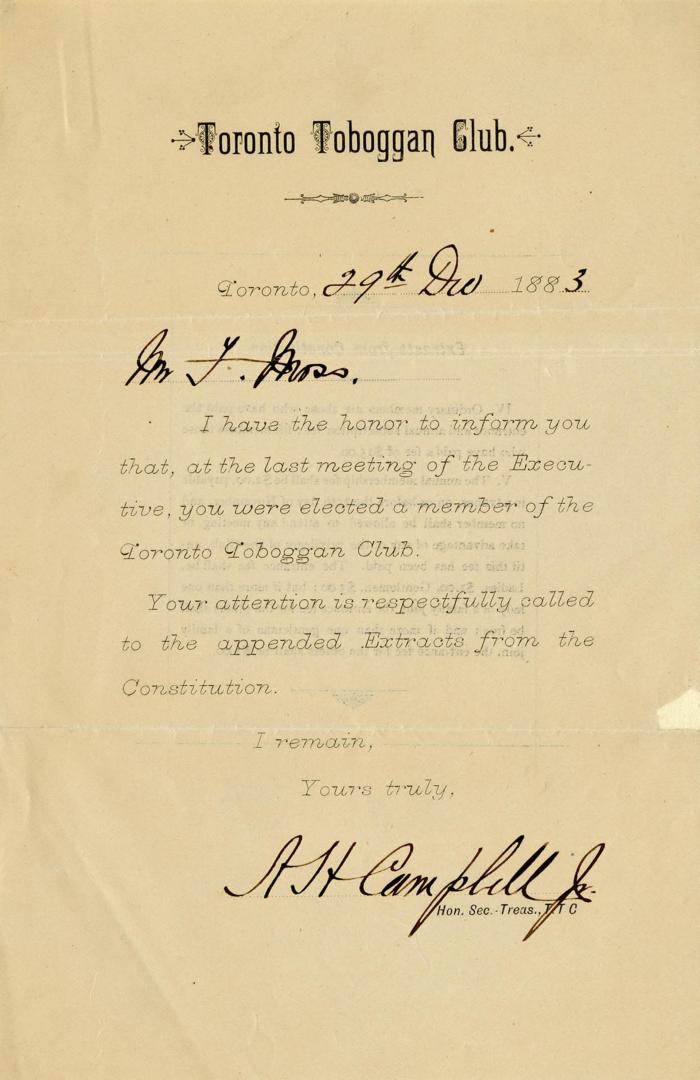 Toronto Toboggan Club.
Toronto, 29th Dec 1883
Mr F. Moss.
I have the honor to inform you
that, at the last meeting of the Execu-
tive, you were elected a member of the
Toronto Toboggan Club.
Your attention is respectfully called
to the appended Extracts from the
Constitution.
I remain,
Yours truly,
A H Campbell Jr.
Hon. Sec.-Treas., T T C